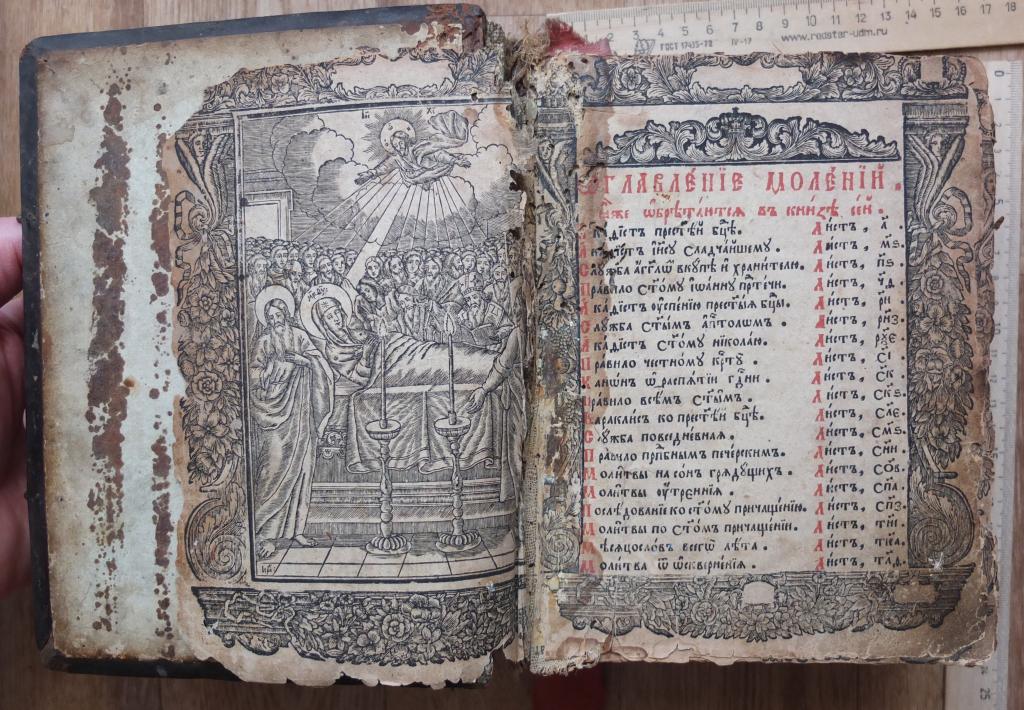 ГОСТ 17435-72 IV-17
www.redstar-udm.ru
ѾГЛАВЛЕ́НЇЕ МОЛЕ́НЇЙ.
Ꙗ҆̀же ѡ҆брѣта́ютсѧ въ кни́зѣ се́й.
А҆ка́ѳїстъ прест҃ѣ́й бц҃ѣ. Ли́стъ, а҃
А҆ка́ѳїстъ і҆и҃су сладча́йшему. Ли́стъ, м҃ѕ.
Слꙋ́жба а҆́гг҃лѡ вкꙋ́пѣ и҆ храни́телю. Ли́стъ, п҃ѕ.
Пра́вило ст҃о́мꙋ і҆ѡа́ннꙋ пр҇те́чи. Ли́стъ, ч҃д.
А҆ка́ѳїстъ ᲂу҆спе́нїю прест҃ы́ѧ бц҃ы. Ли́стъ, р҃и.
Слꙋ́жба ст҃ы́мъ а҆п҇то́лѡмъ. Ли́стъ, рк҃з.
А҆ка́ѳїстъ ст҃о́мꙋ нїкола́ю. Ли́стъ,
Пра́вило честно́мꙋ кр҇тꙋ̀. Ли́стъ, с҃і.
Канѡ́нъ ѡ҆ распѧ́тїи гд҇ни. Ли́стъ, с҃к
Пра́вило всѣ́мъ ст҃ы́мъ. Ли́стъ, ск҃ѕ.
Пара́клисъ ко прест҃ѣ́й бц҃ѣ. Ли́стъ, сл҃е.
Слꙋ́жба повседне́внаѧ. Ли́стъ, см҃ѕ.
Пра́вило прп҇бнымъ пече́рскимъ. Ли́стъ, сн҃и.
Моли́твы на со́нъ грѧдꙋ́щихъ. Ли́стъ, со҃в.
Моли́твы ᲂу҆́трєннїѧ. Ли́стъ, сп҃а.
Послѣ́дованїе ко ст҃о́мꙋ причаще́нїю. Ли́стъ, сп҃з.
Моли́твы по ст҃о́мъ причаще́нїи. Ли́стъ, ті҃и.
Мѣсѧцосло́въ всегѡ̀ лѣ́та. Ли́стъ, тк҃а.
Моли́тва ѿ ѡ҆скверне́нїѧ. Ли́стъ, тл҃д.